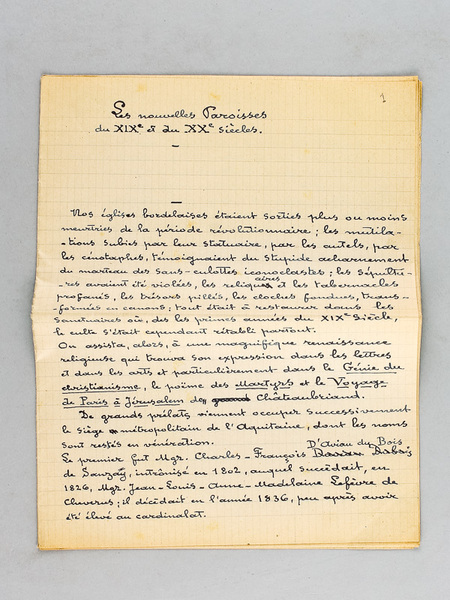 1
Les nouvelles Paroisses
du XIXe & du XXe Siècles.
Nos églises bordelaises étaient sorties plus ou moins
meurtries de la période révolutionnaire ; les mutila-
-tions subies par leur statuaire, par les autels, par
les cénotaphes, témoignaient du stupide acharnement
du marteau des sans-culottes iconoclastes ; les sépultu-
-res avaient été violées, les reliquaires et les tabernacles
profanés, les trésors pillés, les cloches fondues, trans-
-formées en canons ; tout était à restaurer dans les
Sanctuaires où, dès les primes années du XIXe Siècle,
le culte s'était cependant rétabli partout.
On assista, alors, à une magnifique renaissance
religieuse qui trouva son expression dans les lettres
et dans les arts et particulièrement dans le Génie du
christianisme, le poème des Martyrs et le Voyage
de Paris à Jérusalem de Châteaubriand.
De grands prélats viennent occuper successivement
le Siège métropolitain de l'Aquitaine, dont les noms
sont restés en vénération.
D'Aviau du Bois
Le premier fut Mgr. Charles-François
de Sanzay, intrônisé en 1802, auquel succédait, en
1826, Mgr. Jean-Louis-Anne-Madelaine Lefèvre de
Cheverus ; il décédait en l'année 1836, peu après avoir
été élevé au cardinalat.